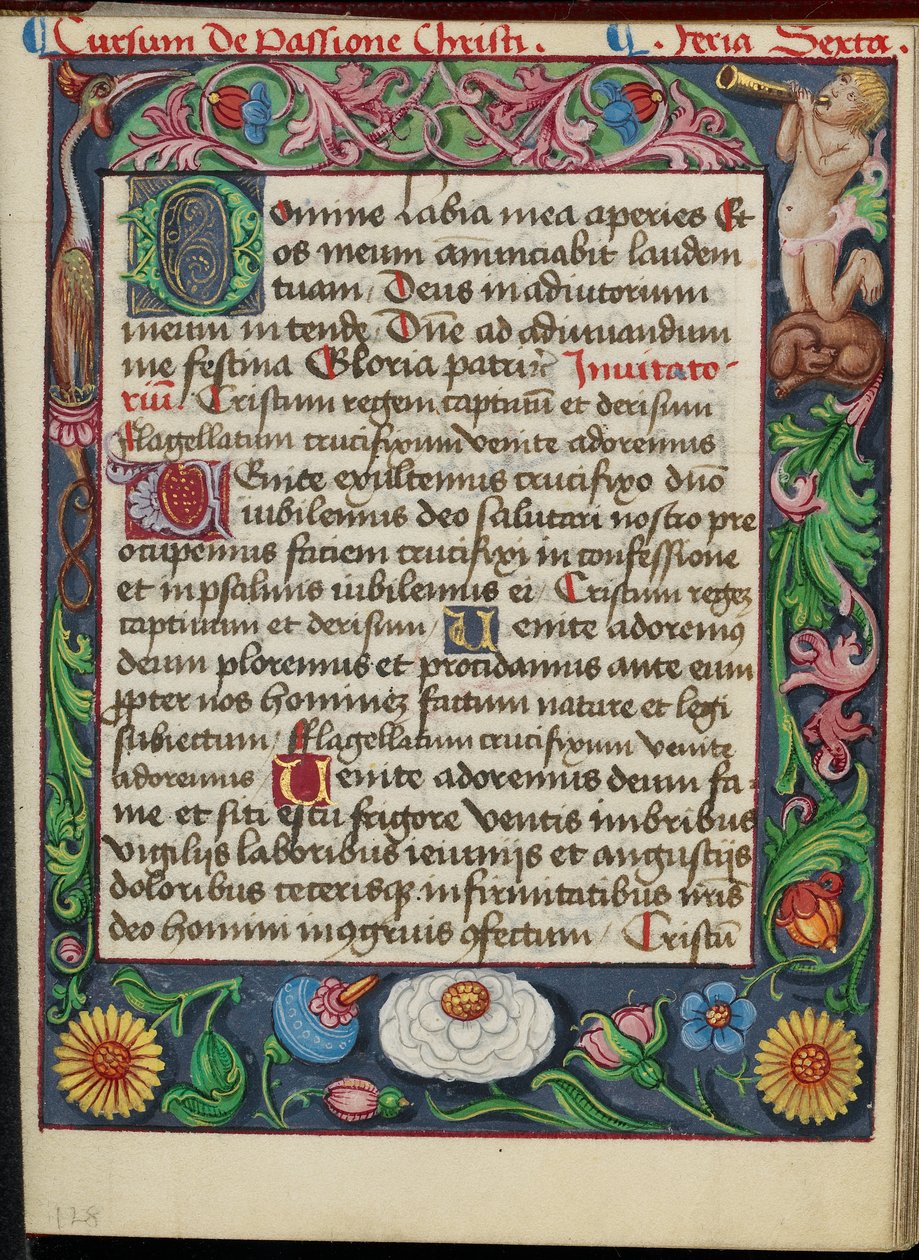 Cursum De Passione Christi . . Feria Sexta .
Domine labia mea aperies Et
os meum an̄unciabit laudem
tuam / Deus in adiutorium
meum intende / Dn̄e ad adiuuandum
me festina Gloria patri ꝛc̄ Inuitato-
riū. Cristum regem captiuū et derisum
Flagellatum crucifixum venite adoremus
Uenite exultemus crucifixo dn̄o
iubilemus deo salutari nostro pre
ocupemus faciem crucifixi in confessione
et in psalmis iubilemus ei / Cristum regeꝫ
captiuum et derisum / Uenite adoremꝰ
deum ploremus et procidamus ante eum
ꝓpter nos homineꝫ factum nature et legi
subiectum / Flagellatum crucifixum venite
adoremus / Uenite adoremus deum fa-
me et siti estu frigore ventis imbribus
vigilijs laboribus ieiunijs et angustijs
doloribus ceterisqꝫ infirmitatibus nr̄is
deo homini ꝯgruis ꝯfectum / Cristū
128